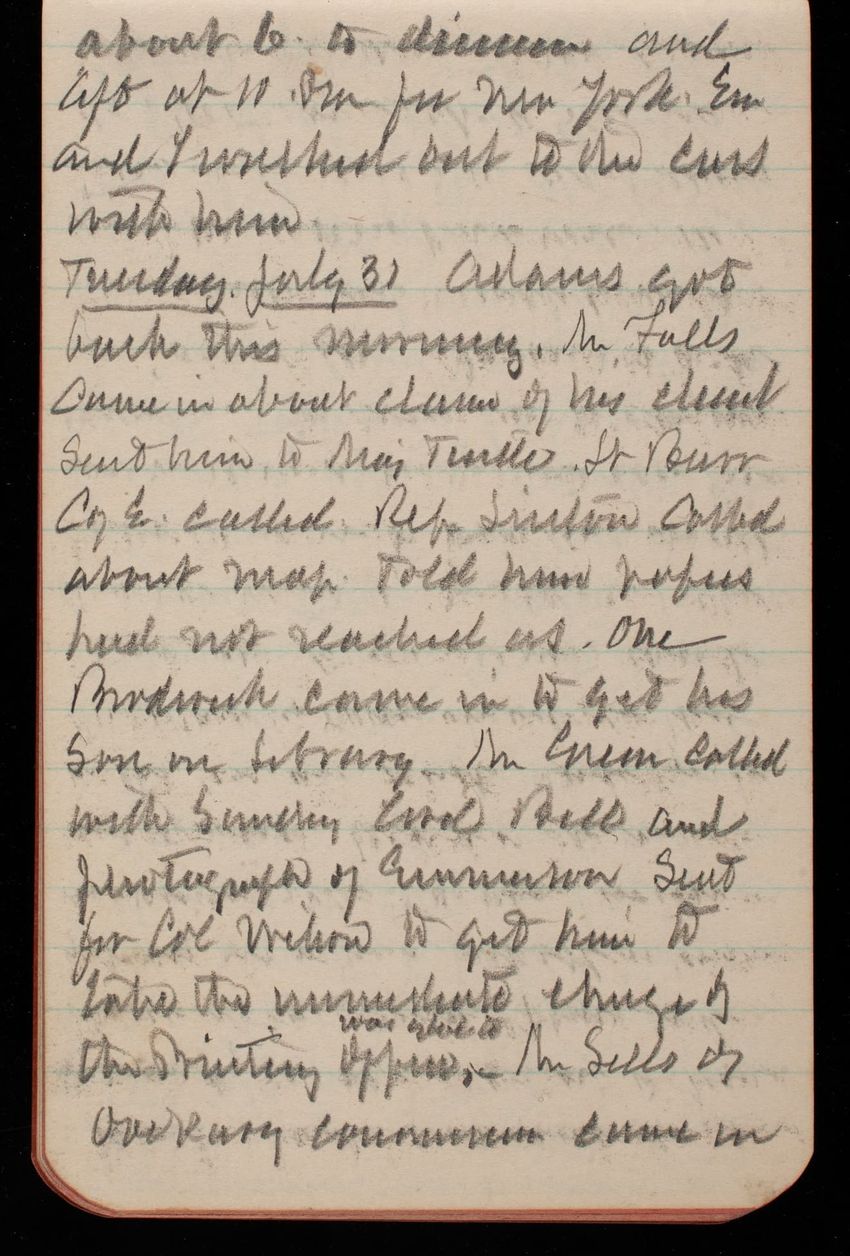 about 6 to dinner and
left at 10 Pm for New York. Em
and I walked out to the cars
with him
Tuesday. July 31 Adams got
back this morning. Mr Falls
Came in about claim of his client
Sent him to Maj Tuttle. Lt Burr
Cy E. called. Rep called
about map. Told him papers
had not reached us. One
Brodwick came in to get his
Son on library. Mr Green called
with Sundry Civil Bill and
photograph of Emmerson Sent
for Col Wilson to get him to
take the immediate charge of
was glad to
the Printing Office,- Mr Sells of
Dockery commission came in